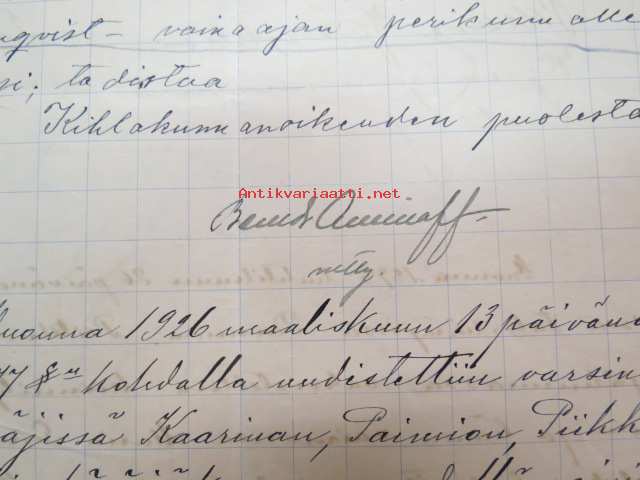 qvist - vainaajan perikunnalle
si; todistaa
Kihlakunnanoikeuden puolesta
Antikvariaatti.net
Aminoff
Vuonna 1926 maaliskuun 13 päivänä
77 §:n kohdalla uudistettiin varsin
äjissä Kaarinan, Paimion, Piikk